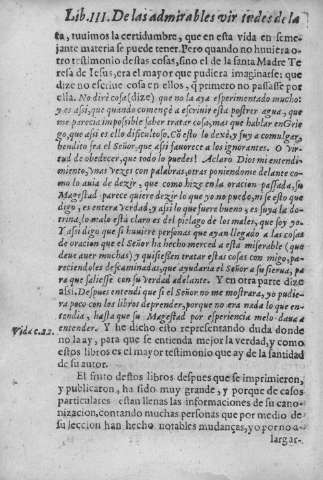 Lib. III. De las admirables virtudes de la
ta, tuuimos la certidumbre, que en esta vida en seme-
jante materia se puede tener. Pero quando no huuiera o-
tro testimonio destas cosas, sino el de la santa Madre Te
resa de Iesus, era el mayor que pudiera imaginarse: que
dize no escriue cosa en ellos, q̃ primero no passasse por
ella. No dirè cosa (dize) que no la aya esperimentado mucho:
y es assi, que quando començè a escriuir esta postrer agua, que
me parecia impossible saber tratar cosa, mas que hablar en Grie
go, que assi es ello dificultoso. Cõ esto lo dexè, y fuy a comulgar,
bendito sea el Señor, que assi fauorece a los ignorantes. O vir-
tud de obedecer, que todo lo puedes! Aclarò Dios mi entendi-
miento, vnas vezes con palabras, otras poniendome delante co-
mo lo auia de dezir, que como hizo en la oracion passada, su
Magestad parece quiere dezir lo que yo no puedo, ni sè esto que
digo, es entera verdad, y assi lo que fuere bueno, es suya la do-
trina, lo malo està claro es del pielago de los males, que soy yo.
Y assi digo que si huuiere personas que ayan llegado a las cosas
de oracion que el Señor ha hecho merced a esta miserable (que
deue auer muchas) y quisiessen tratar estas cosas con migo, pa-
reciendoles descaminadas, que ayudaria el Señor a su sierua, pa
ra que saliesse con su verdad adelante. Y en otra parte dize
assi. Despues entendi que si el Señor no me mostrara, yo pudie-
ra poco con los libros deprender, porque no era nada lo que en-
tendia, hasta que su Magestad por esperiencia melo daua a
Vida c. 22. entender. Y he dicho esto representando duda donde
no la ay, para que se entienda mejor la verdad, y como
estos libros es el mayor testimonio que ay de la sanidad
de su autor.
El fruto destos libros despues que se imprimieron,
y publicaron, ha sido muy grande, y porque de casos
particulares estan llenas las informaciones de su cano-
nizacion, contando muchas personas que por medio de
su leccion han hecho notables mudanças, yo por no a-
largar-